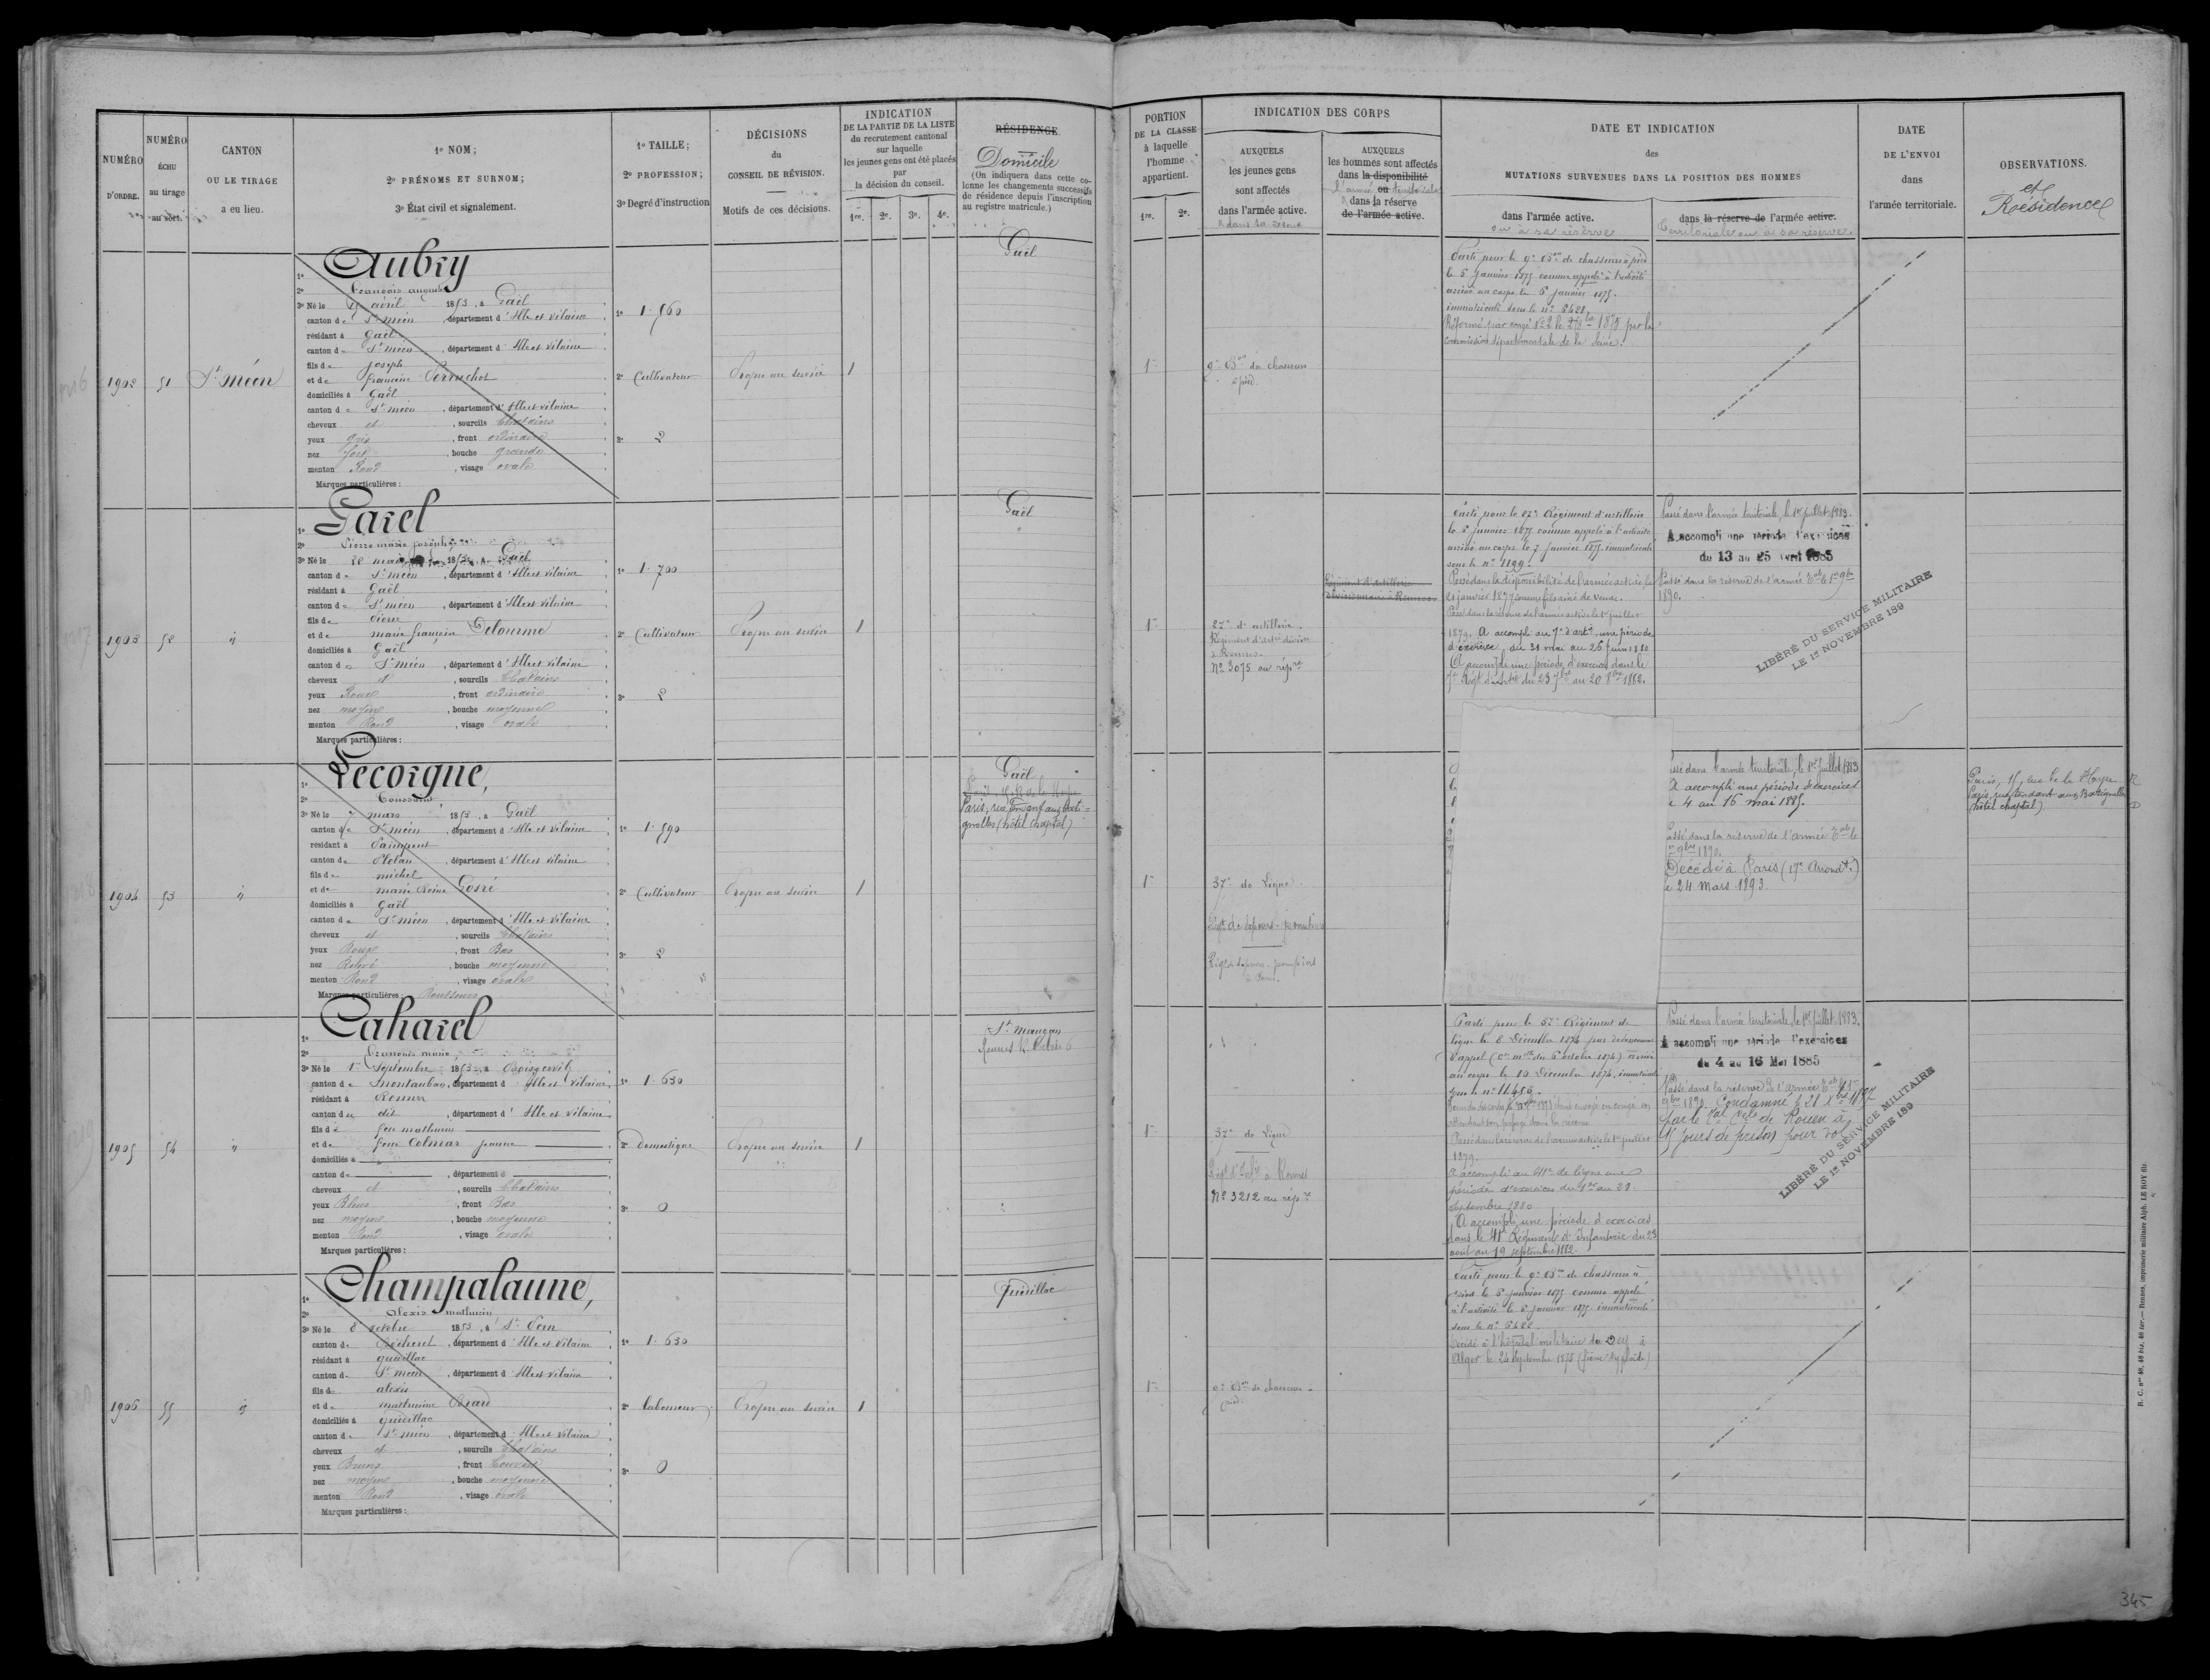 NUMÉRO
D'ORDRE.
NUMÉRO
ÉCHU
au tirage
au sort.
CANTON
OU LE TIRAGE
a eu lieu.
1º NOM;
2º PRÉNOMS ET SURNOM;
3º État civil et signalement.
1º TAILLE;
2º PROFESSION;
3º Degré d'instruction
DÉCISIONS
du
CONSEIL DE RÉVISION.
Motifs de ces décisions.
INDICATION
DE LA PARTIE DE LA LISTE
du recrutement cantonal
sur laquelle
les jeunes gens ont été placés
par
la décision du conseil.
1re. 2e. 3e. 4e.
RÉSIDENCE
Domicile
(On indiquera dans cette co-
lonne les changements successifs
de résidence depuis l'inscription
au registre matricule.)
1902
51
St Méen
Aubry
2º François auguste
3º Né le avril 1853, à Gaël
canton de St Méen, département d'Ille et Vilaine
résidant à Gaël
canton de St Méen, département d'Ille et Vilaine
fils de Joseph
et de françoise Perruchot
domiciliés à Gaël
canton de St Méen, département d'Ille et Vilaine
cheveux et, sourcils Chatains
yeux gris, front ordinaire
nez fort, bouche grande
menton Rond, visage ovale
Marques particulières :
1º 1.560
2º Cultivateur
3º 2
Propre au service
1
Gaël
1903
52
"
Garel
2º Pierre marie joseph
3º Né le 28 mai 1853, à Gaël
canton de St Méen, département d'Ille et Vilaine
résidant à Gaël
canton de St Méen, département d'Ille et Vilaine
fils de Pierre
et de marie françoise Delourme
domiciliés à Gaël
canton de St Méen, département d'Ille et Vilaine
cheveux et, sourcils Chatains
yeux Roux, front ordinaire
nez moyen, bouche moyenne
menton Rond, visage ovale
Marques particulières :
1º 1.700
2º Cultivateur
3º 2
Propre au service
1
Gaël
1904
53
"
Lecorgne,
2º Toussaint
3º Né le 7 mars 1853, à Gaël
canton de St Méen, département d'Ille et Vilaine
résidant à Paimpont
canton de Plélan, département d'Ille et Vilaine
fils de michel
et de marie Reine Gosré
domiciliés à Gaël
canton de St Méen, département d'Ille et Vilaine
cheveux et, sourcils Chatains
yeux Roux, front Bas
nez Relevé, bouche moyenne
menton Rond, visage ovale
Marques particulières : Rousseurs
1º 1.590
2º Cultivateur
3º 2
Propre au service
1
Gaël
Paris, rue
gnolles (hôtel Chaptal)
1905
54
"
Caharel
2º François marie
3º Né le 1er Septembre 1853, à Boisgervilly
canton de Montauban, département d'Ille et Vilaine
résidant à Rennes
canton de dit, département d'Ille et Vilaine
fils de feu mathurin
et de feue Colmar jeanne
domiciliés à
canton de, département d
cheveux et, sourcils Chatains
yeux Bleus, front Bas
nez moyen, bouche moyenne
menton Rond, visage ovale
Marques particulières :
1º 1.630
2º domestique
3º 0
Propre au service
1
St Maugan
1906
55
"
Champalaune,
2º Alexis mathurin
3º Né le 8 octobre 1853, à St Pern
canton de Bécherel, département d'Ille et Vilaine
résidant à quédillac
canton de St Méen, département d'Ille et Vilaine
fils de alexis
et de mathurine
domiciliés à quédillac
canton de St Méen, département d'Ille et Vilaine
cheveux et, sourcils Chatains
yeux Bruns, front Couvert
nez moyen, bouche moyenne
menton Rond, visage ovale
Marques particulières :
1º 1.630
2º laboureur
3º 0
Propre au service
1
Quédillac
PORTION
DE LA CLASSE
à laquelle
l'homme
appartient.
1re. 2e.
INDICATION DES CORPS
AUXQUELS
les jeunes gens
sont affectés
dans l'armée active.
& dans sa réserve
AUXQUELS
les hommes sont affectés
dans la disponibilité
l'armée ou territoriale
& dans la réserve
de l'armée active.
DATE ET INDICATION
des
MUTATIONS SURVENUES DANS LA POSITION DES HOMMES
dans l'armée active.
ou à sa réserve
dans la réserve de l'armée active.
territoriale ou à sa réserve.
DATE
DE L'ENVOI
dans
l'armée territoriale.
OBSERVATIONS.
et
Résidence
1re
9e Bon de chasseurs
à pied.
Parti pour le 9e Bon de chasseurs à pied
le 5 Janvier 1875 comme appelé à l'activité
arrivé au corps le 6 Janvier 1875.
immatriculé sous le nº 6421.
Réformé par congé Nº 2 le 1875 par la
commission départementale de la Seine.
1re
27e d'artillerie.
Régiment d'Artie division
à Rennes.
Nº 3075 au répre
Régiment d'artillerie
divisionnaire à Rennes
Parti pour le 27e Régiment d'artillerie
le 5 janvier 1875 comme appelé à l'activité
arrivé au corps le 7 Janvier 1875 immatriculé
sous le nº 1199.
Passé dans la disponibilité de l'armée active le
21 janvier 1877 comme fils aîné de veuve.
Passé dans la réserve de l'armée active le 1er juillet
1879. A accompli au 7e d'artie une période
d'exercice, du 31 mai au 26 juin 1880
A accompli une période d'exercices dans le
7e Régt d'Artie du 23 7bre au 20 8bre 1882.
Passé dans l'armée territoriale, le 1er juillet 1883.
A accompli une période d'exercices
du 13 au 25 Avril 1885
Passé dans la réserve de l'armée tale le 1er 9bre
1890.
LIBÉRÉ DU SERVICE MILITAIRE
LE 1er NOVEMBRE 189
1re
37e de Ligne.
Régt de Sapeurs-pompiers
Régt de Sapeurs-pompiers
à Paris.
ssé dans l'armée territoriale, le 1er Juillet 1883
A accompli une période d'exercices
e 4 au 16 mai 1885.
assé dans la réserve de l'armée tale le
9bre 1890.
Décédé à Paris (17e Arrondt.)
e 24 Mars 1893
Paris, 15, rue de la
Paris, rue tendant aux Batignolles
(hôtel chaptal)
1re
37e de Ligne
Régt d'Infie à Rennes
Nº 3212 au répre
Parti pour le 37e Régiment de
ligne le 8 Décembre 1874 par devancement
d'appel arrivé
au corps le 10 Décembre 1874, immatriculé
sous le nº 11453.
Passé dans la réserve de l'armée active le 1er juillet
1879.
A accompli au 41e de ligne une
période d'exercices du 1er au 28
Septembre 1880
A accompli une période d'exercices
dans le 41e Régiment d'infanterie du 23
août au 19 septembre 1882.
Passé dans l'armée territoriale, le 1er juillet 1883.
A accompli une période d'exercices
du 4 au 16 Mai 1885
Passé dans la réserve de l'armée tale le 1er
9bre 1890. Condamné le 21 Xbre 1897
par le de Rouen à
15 jours de prison pour vol
LIBÉRÉ DU SERVICE MILITAIRE
LE 1er NOVEMBRE 189
1re
9e Bon de chasseurs à
pied.
Parti pour le 9e Bon de chasseurs à
pied le 5 janvier 1875 comme appelé
à l'activité le 6 janvier 1875 immatriculé
sous le nº 6422.
Décédé à l'hôpital militaire du Dey à
Alger le 24 Septembre 1875 (fièvre typhoïde)
R. C. nos 48, 48 bis, 48 ter.— Rennes, imprimerie militaire Alph. LE ROY fils.
345